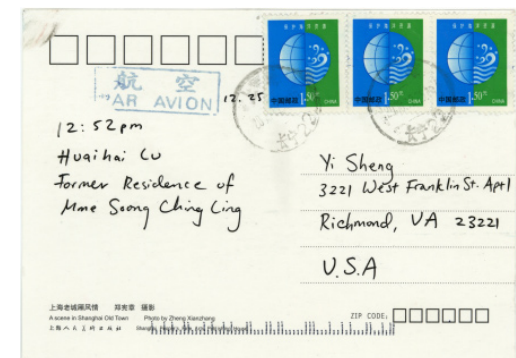 保护海洋资源
中国邮政 1.50元 CHINA
保护海洋资源
中国邮政 1.50元 CHINA
保护海洋资源
中国邮政 1.50元 CHINA
航空
PAR AVION
12.25
12:52pm
Huaihai Lu
Former Residence of
Mme Soong Ching Ling
Yi Sheng
3221 West Franklin St. Apt 1
Richmond, VA 23221
U.S.A
上海老城厢风情 郑宪章 摄影
A scene in Shanghai Old Town Photo by Zheng Xianzhang
上海人民美术出版社
ZIP CODE: